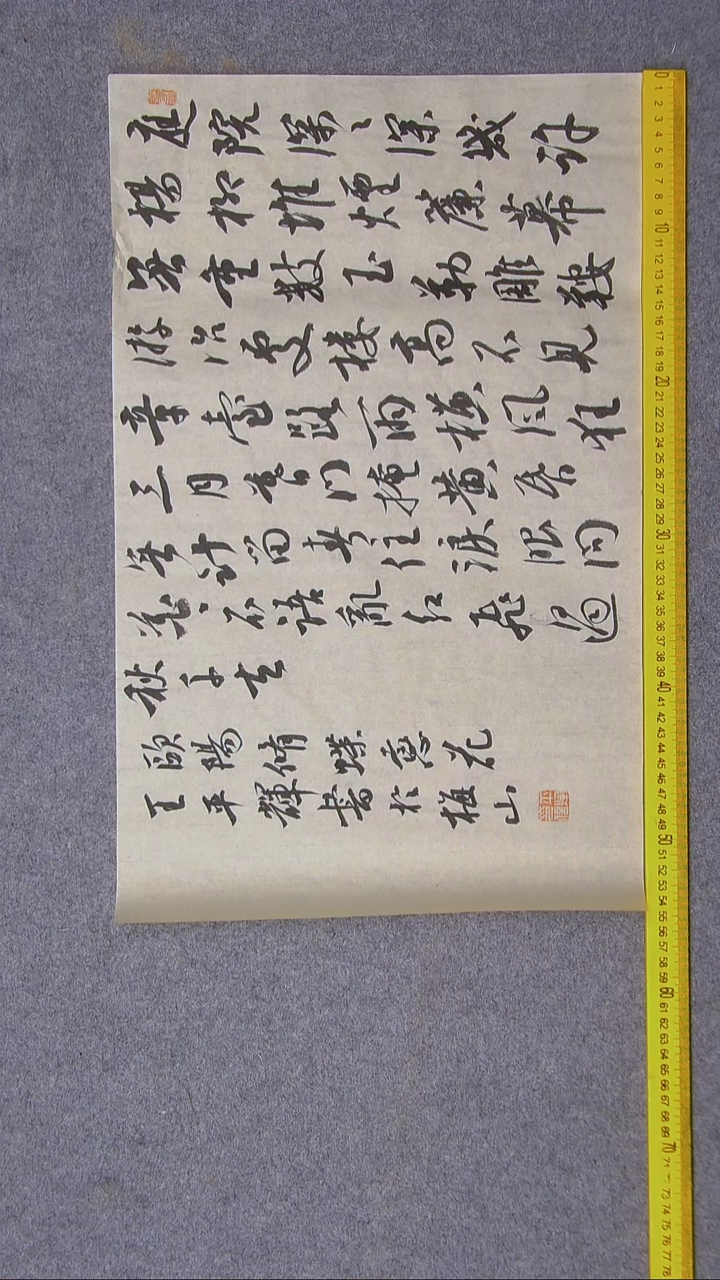 庭院深〻深幾許
楊柳堆煙簾幕
無重數玉勒雕鞍
游冶處樓高不見
章臺路雨橫風狂
三月暮門掩黃昏
無計留春住淚眼問
花〻不語亂紅飛過
秋千去
歐陽脩蝶戀花
王平輝書於梅山
0 1 2 3 4 5 6 7 8 9 10 11 12 13 14 15 16 17 18 19 20 21 22 23 24 25 26 27 28 29 30 31 32 33 34 35 36 37 38 39 40 41 42 43 44 45 46 47 48 49 50 51 52 53 54 55 56 57 58 59 60 61 62 63 64 65 66 67 68 69 70 71 73 74 75 76 77 78